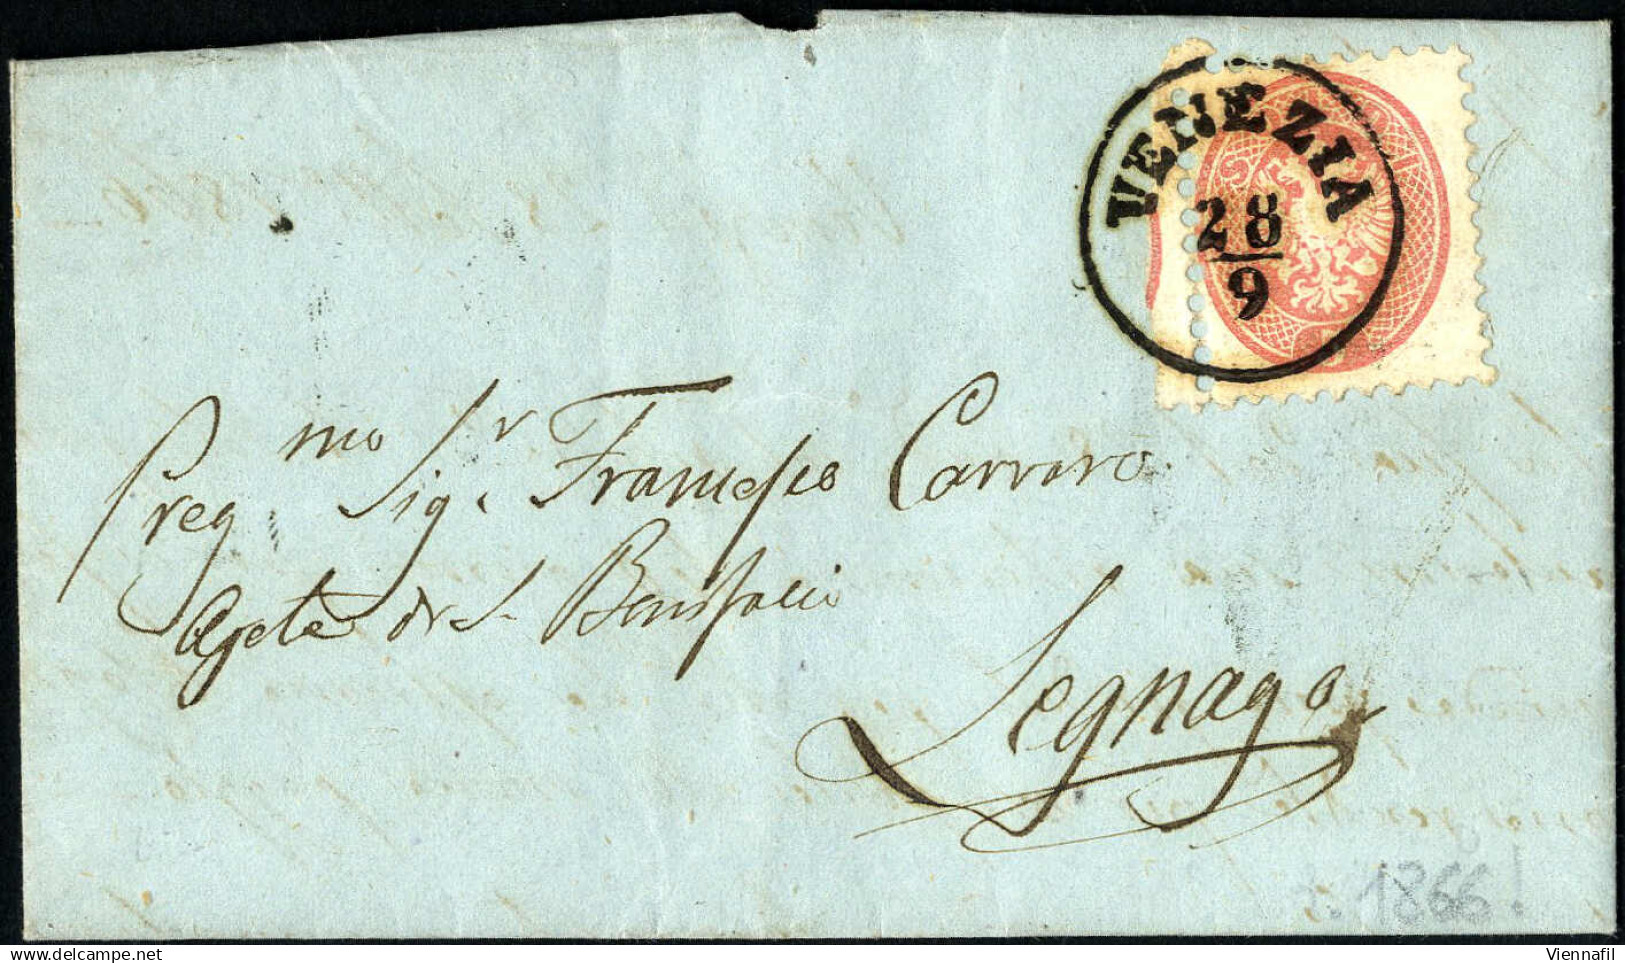 VENEZIA
28
9
Preg.mo Sig.r Francesco Carraro
Agete di S. Bonifacio
Legnago
1866!
Viennafil